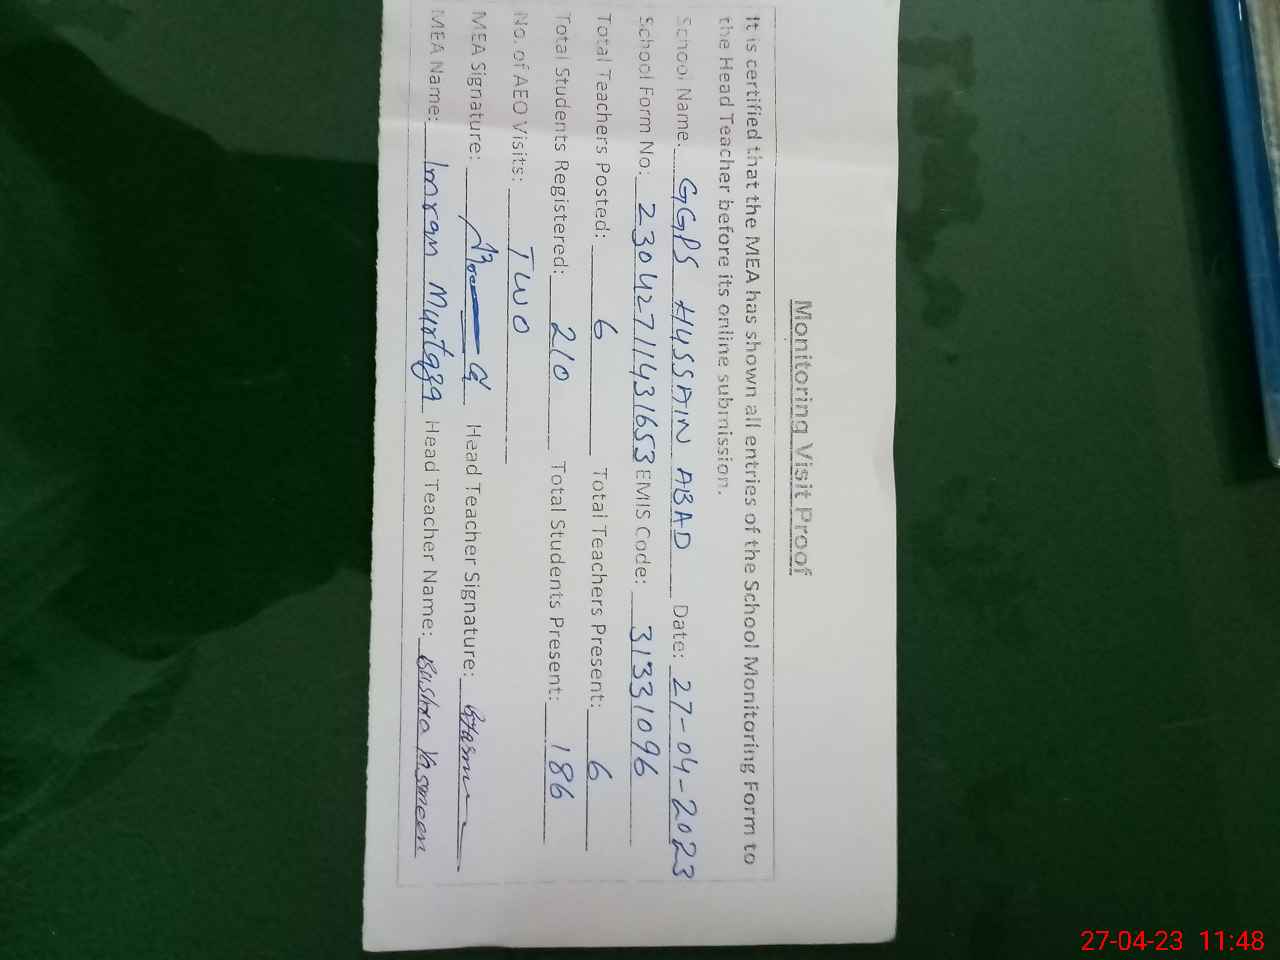 Monitoring Visit Proof
It is certified that the MEA has shown all entries of the School Monitoring Form to
the Head Teacher before its online submission.
School Name: GGPS HUSSAIN ABAD Date: 27-04-2023
School Form No: 23042711431653 EMIS Code: 31331096
Total Teachers Posted: 6 Total Teachers Present: 6
Total Students Registered: 210 Total Students Present: 186
No. of AEO Visits: Two
MEA Signature: Head Teacher Signature:
MEA Name: Imran Murtaza Head Teacher Name: Bushra Yasmeen
27-04-23 11:48